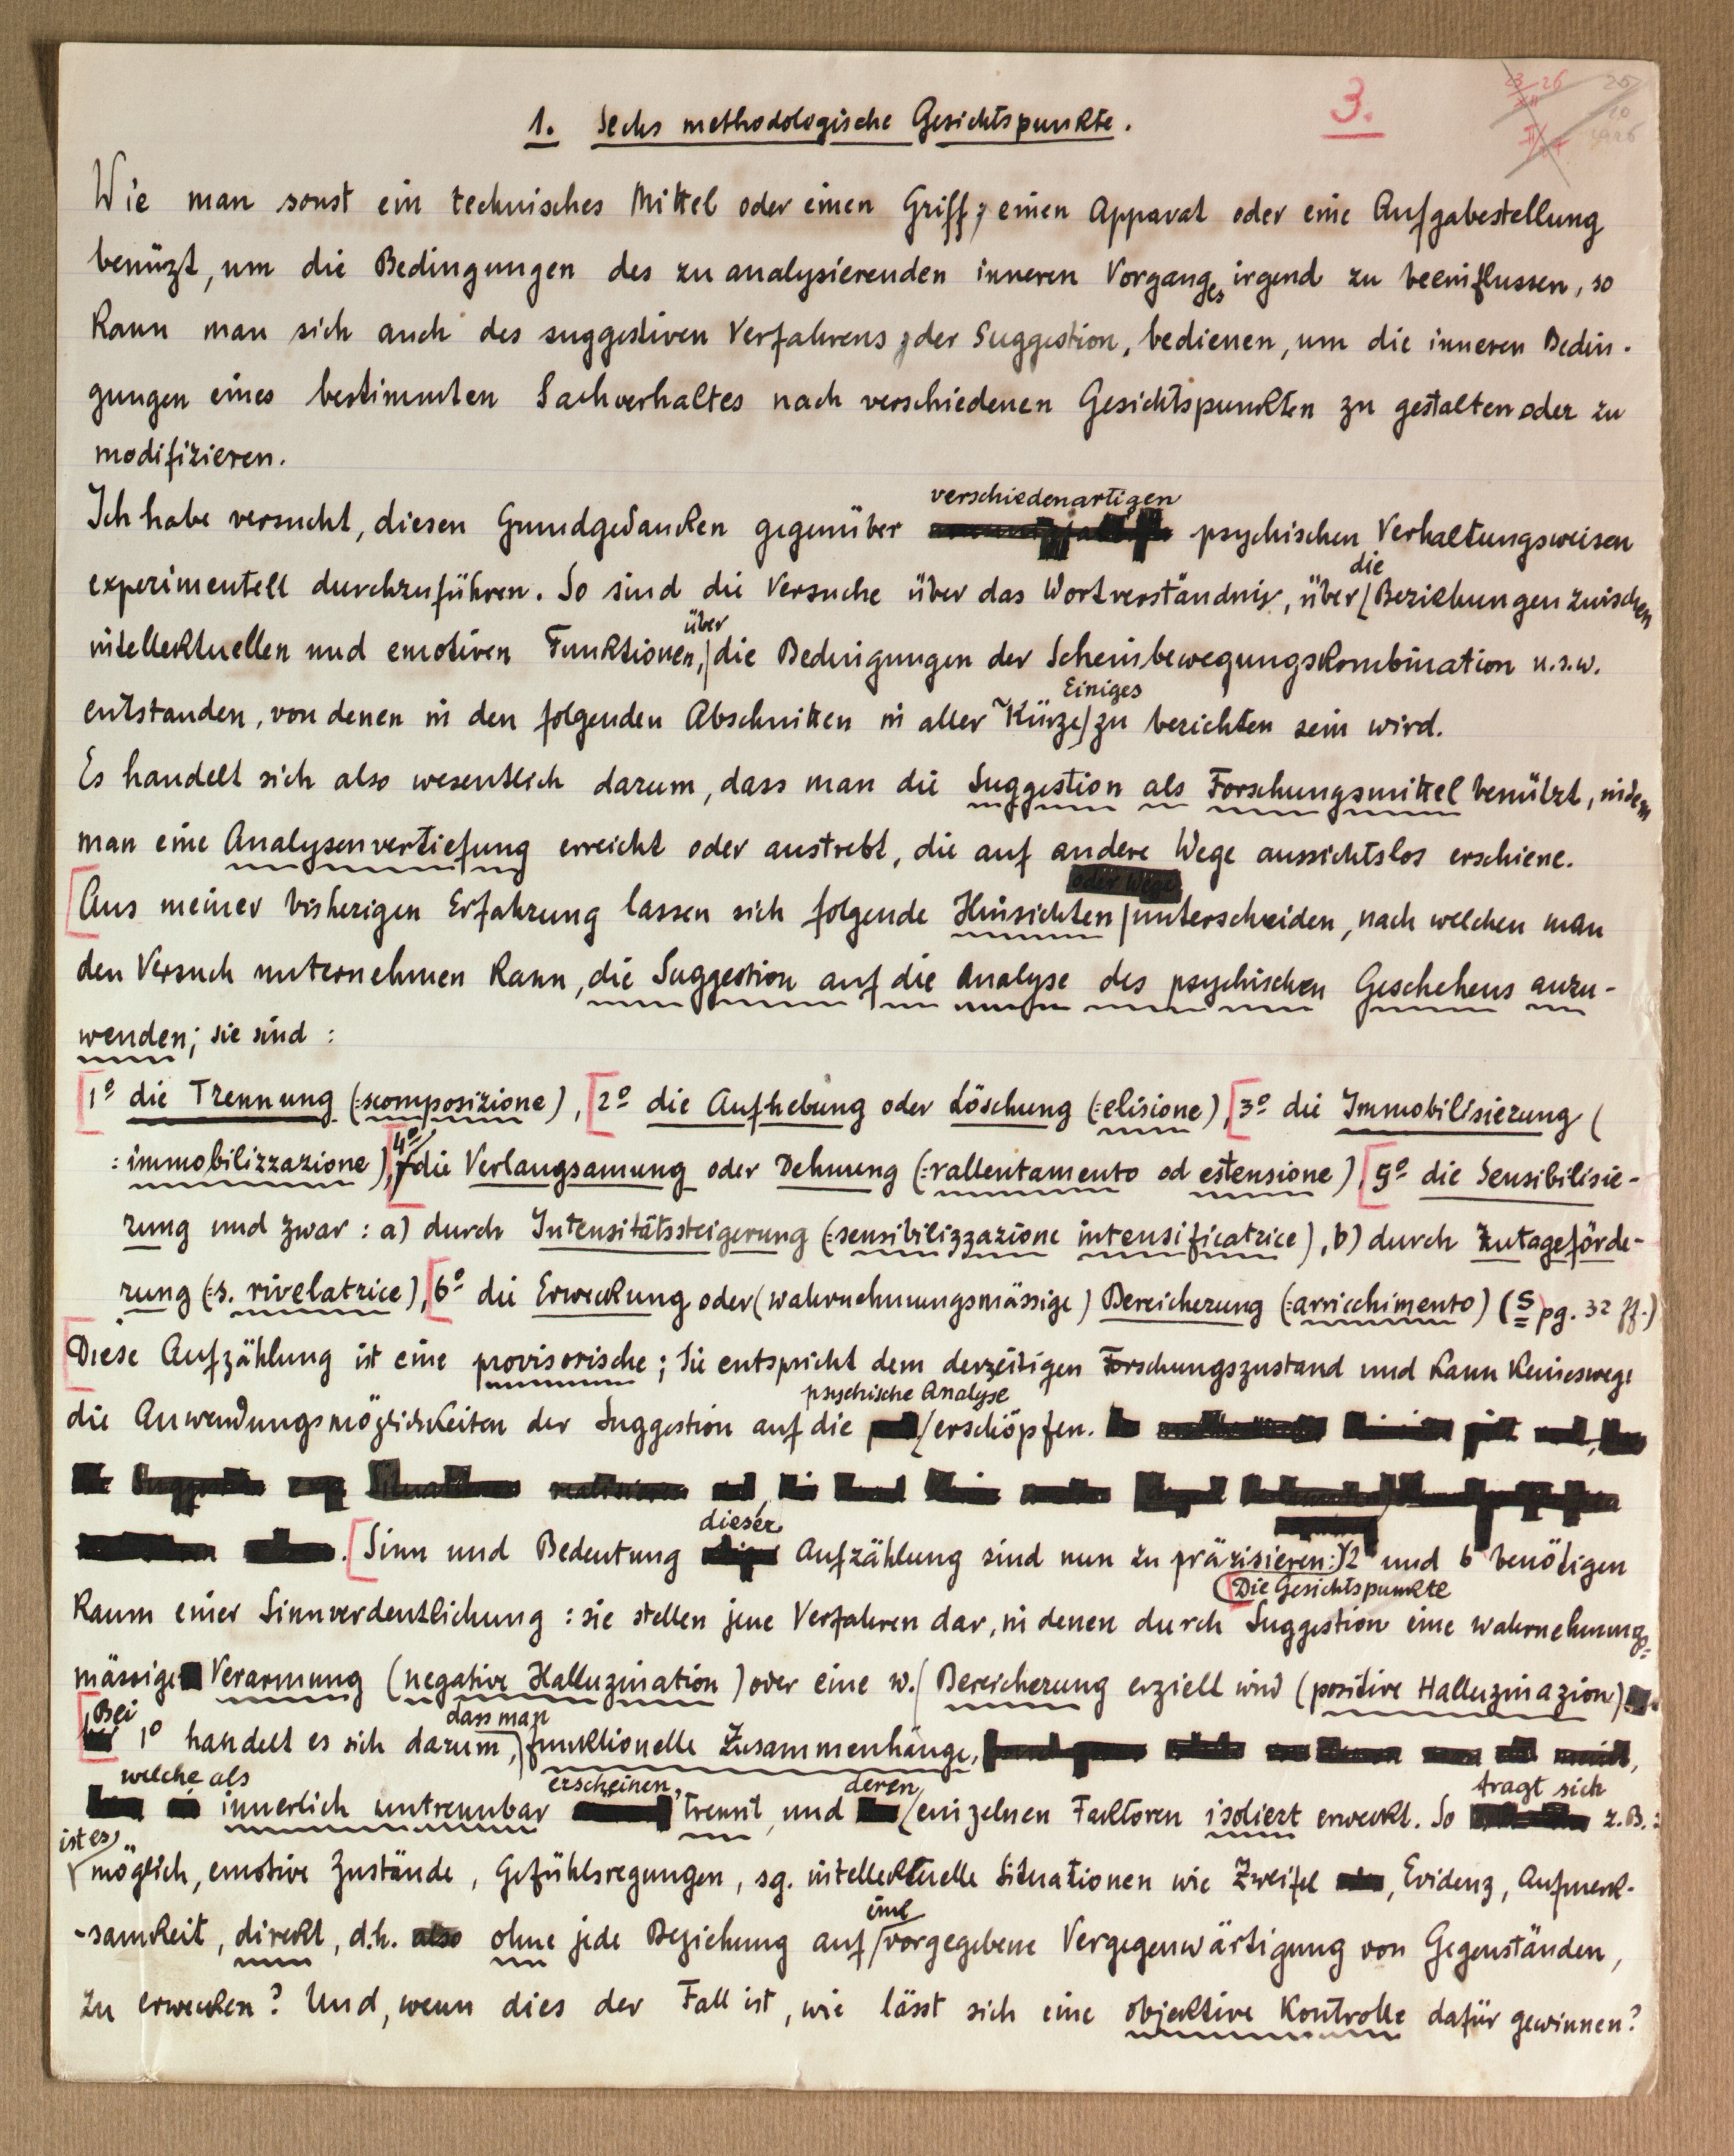 3.
1. Sechs methodologische Gesichtspunkte.
Wie man sonst ein technisches Mittel oder einen Griff, einen Apparat oder eine Aufgabestellung
benüzt, um die Bedingungen des zu analysierenden inneren Vorganges irgend zu beeinflussen, so
kann man sich auch des suggestiven Verfahrens, der Suggestion, bedienen, um die inneren Bedin-
gungen eines bestimmten Sachverhaltes nach verschiedenen Gesichtspunkten zu gestalten oder zu
modifizieren.
verschiedenartigen
Ich habe versucht, diesen Grundgedanken gegenüber psychischen Verhaltungsweisen
die
experimentell durchzuführen. So sind die Versuche über das Wortverständnis, über Beziehungen zwischen
über
intellektuellen und emotiven Funktionen, die Bedingungen der Scheinbewegungskombination u.s.w.
Einiges
entstanden, von denen in den folgenden Abschnitten in aller Kürze zu berichten sein wird.
Es handelt sich also wesentlich darum, dass man die Suggestion als Forschungsmittel benützt, indem
man eine Analysenvertiefung erreicht oder anstrebt, die auf andere Wege aussichtslos erschiene.
oder Wege
Aus meiner bisherigen Erfahrung lassen sich folgende Hinsichten unterscheiden, nach welchen man
den Versuch unternehmen kann, die Suggestion auf die Analyse des psychischen Geschehens anzu-
wenden; sie sind :
1º die Trennung (:scomposizione), 2º die Aufhebung oder Löschung (:elisione), 3º die Immobilisierung (
4º
:immobilizzazione), die Verlangsamung oder Dehnung (:rallentamento od estensione), 5º die Sensibilisie-
rung und zwar : a) durch Intensitätssteigerung (:sensibilizzazione intensificatrice), b) durch Zutageförde-
rung (:s. rivelatrice), 6º die Erweckung oder (wahrnehmungsmässige) Bereicherung (:arricchimento) (S pg. 32 ff.)
Diese Aufzählung ist eine provisorische; sie entspricht dem derzeitigen Forschungszustand und kann keineswegs
psychische Analyse
die Anwendungsmöglichkeiten der Suggestion auf die erschöpfen.
dieser
Sinn und Bedeutung Aufzählung sind nun zu präzisieren:) 2 und 6 benötigen
Die Gesichtspunkte
kaum einer Sinnverdeutlichung : sie stellen jene Verfahren dar, in denen durch Suggestion eine wahrnehmungs-
mässige Verarmung (negative Halluzination) oder eine w. Bereicherung erzielt wird (positive Halluzinazion).
Bei dass man
1º handelt es sich darum, funktionelle Zusammenhänge,
welche als erscheinen, deren fragt sich
innerlich untrennbar trennt, und einzelnen Faktoren isoliert erweckt. So z.B.:
ist es
möglich, emotive Zustände, Gefühlsregungen, sg. intellektuelle Situationen wie Zweifel, Evidenz, Aufmerk-
eine
-samkeit, direkt, d.h. also ohne jede Beziehung auf vorgegebene Vergegenwärtigung von Gegenständen,
zu erwecken? Und, wenn dies der Fall ist, wie lässt sich eine objektive Kontrolle dafür gewinnen?